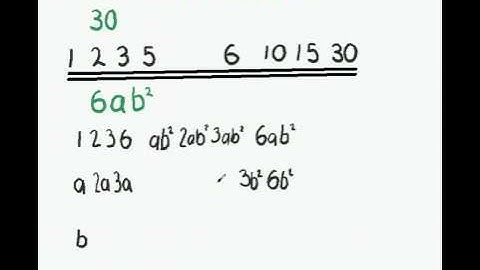 30
1 2 3 5 6 10 15 30
6ab²
1 2 3 6 ab² 2ab² 3ab² 6ab²
a 2a 3a 3b² 6b²
b